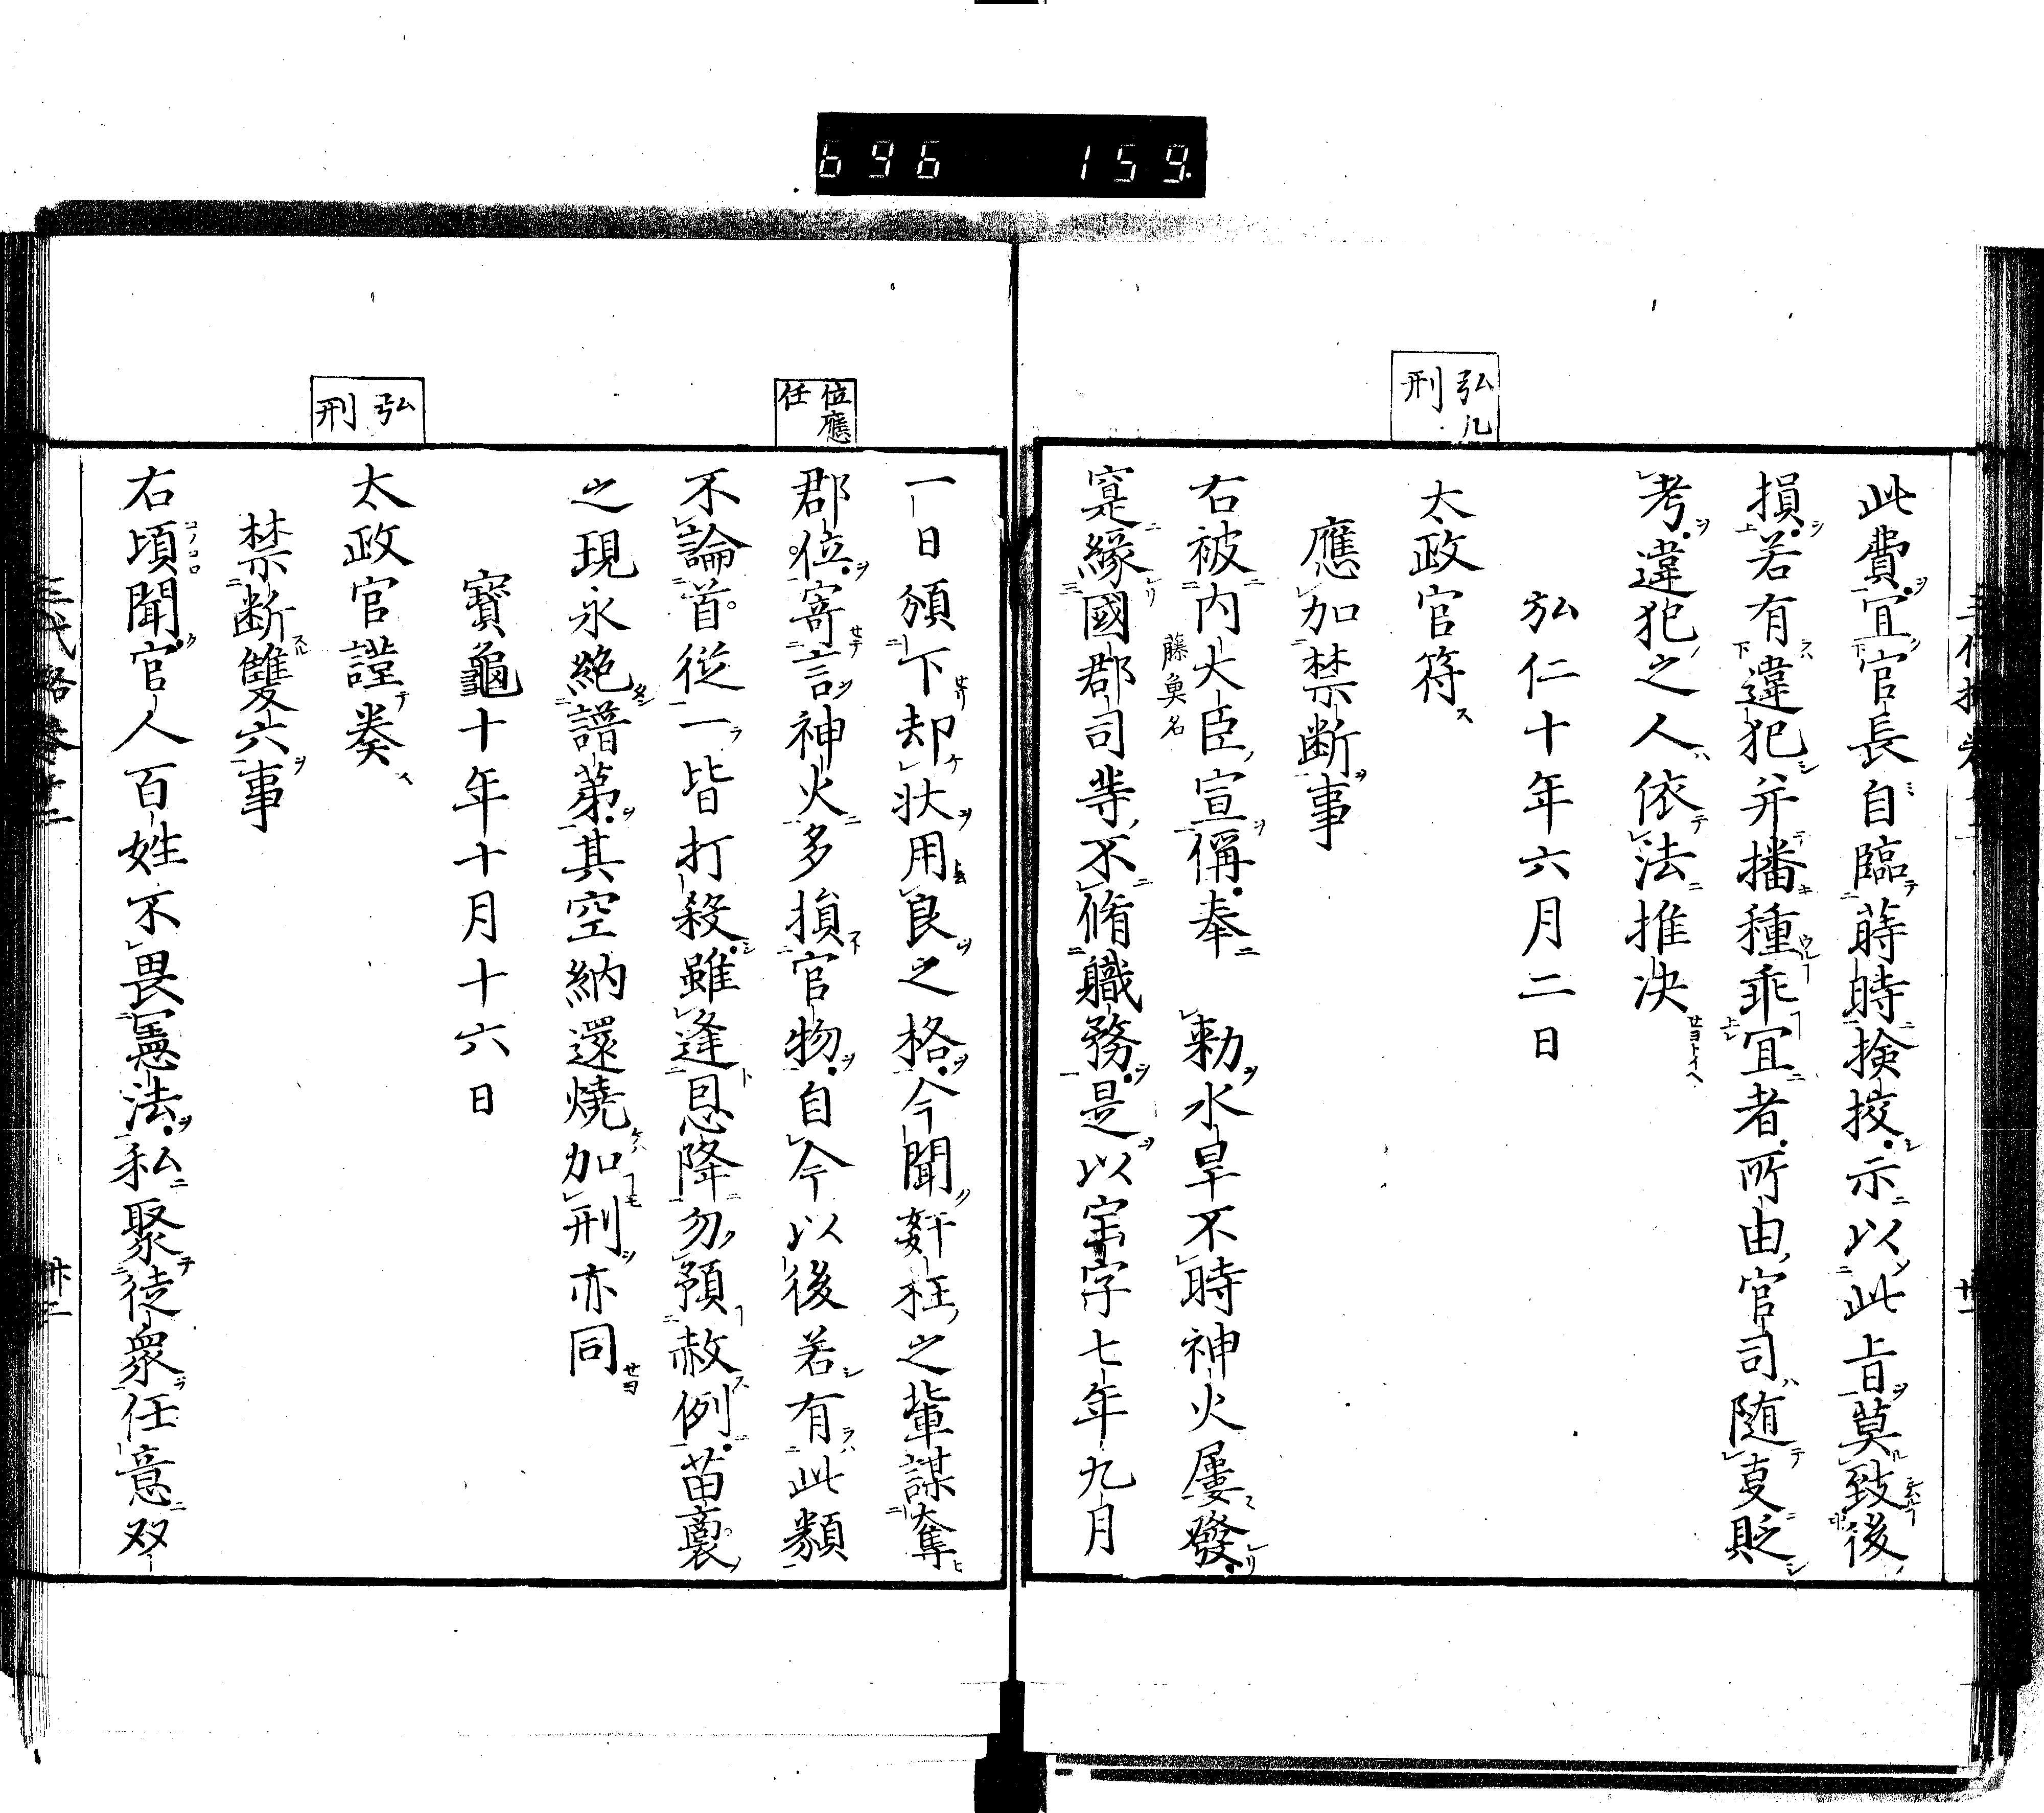 696 159
弘几
刑
此費宜官長自臨蒔時撿挍示以此旨莫致後
損若有違犯并播種乖宜者所由官司随支貶
考違犯之人依法推決
弘仁十年六月二日
太政官符
應加禁断事
右被内大臣宣偁奉 勅水旱不時神火屢發
藤魚名
寔緣國郡司等不脩職務是以宝字七年九月
位應
任
弘
刑
一日頒下却状用良之格今聞姧枉之輩謀奪
郡位寄言神火多損官物自今以後若有此類
不論首從一皆打殺雖逢恩降勿預赦例苗裏
之現永絶譜第其空納還燒加刑亦同
寶龜十年十月十六日
太政官謹奏
禁断雙六事
右頃聞官人百姓不畏憲法私聚徒衆任意双